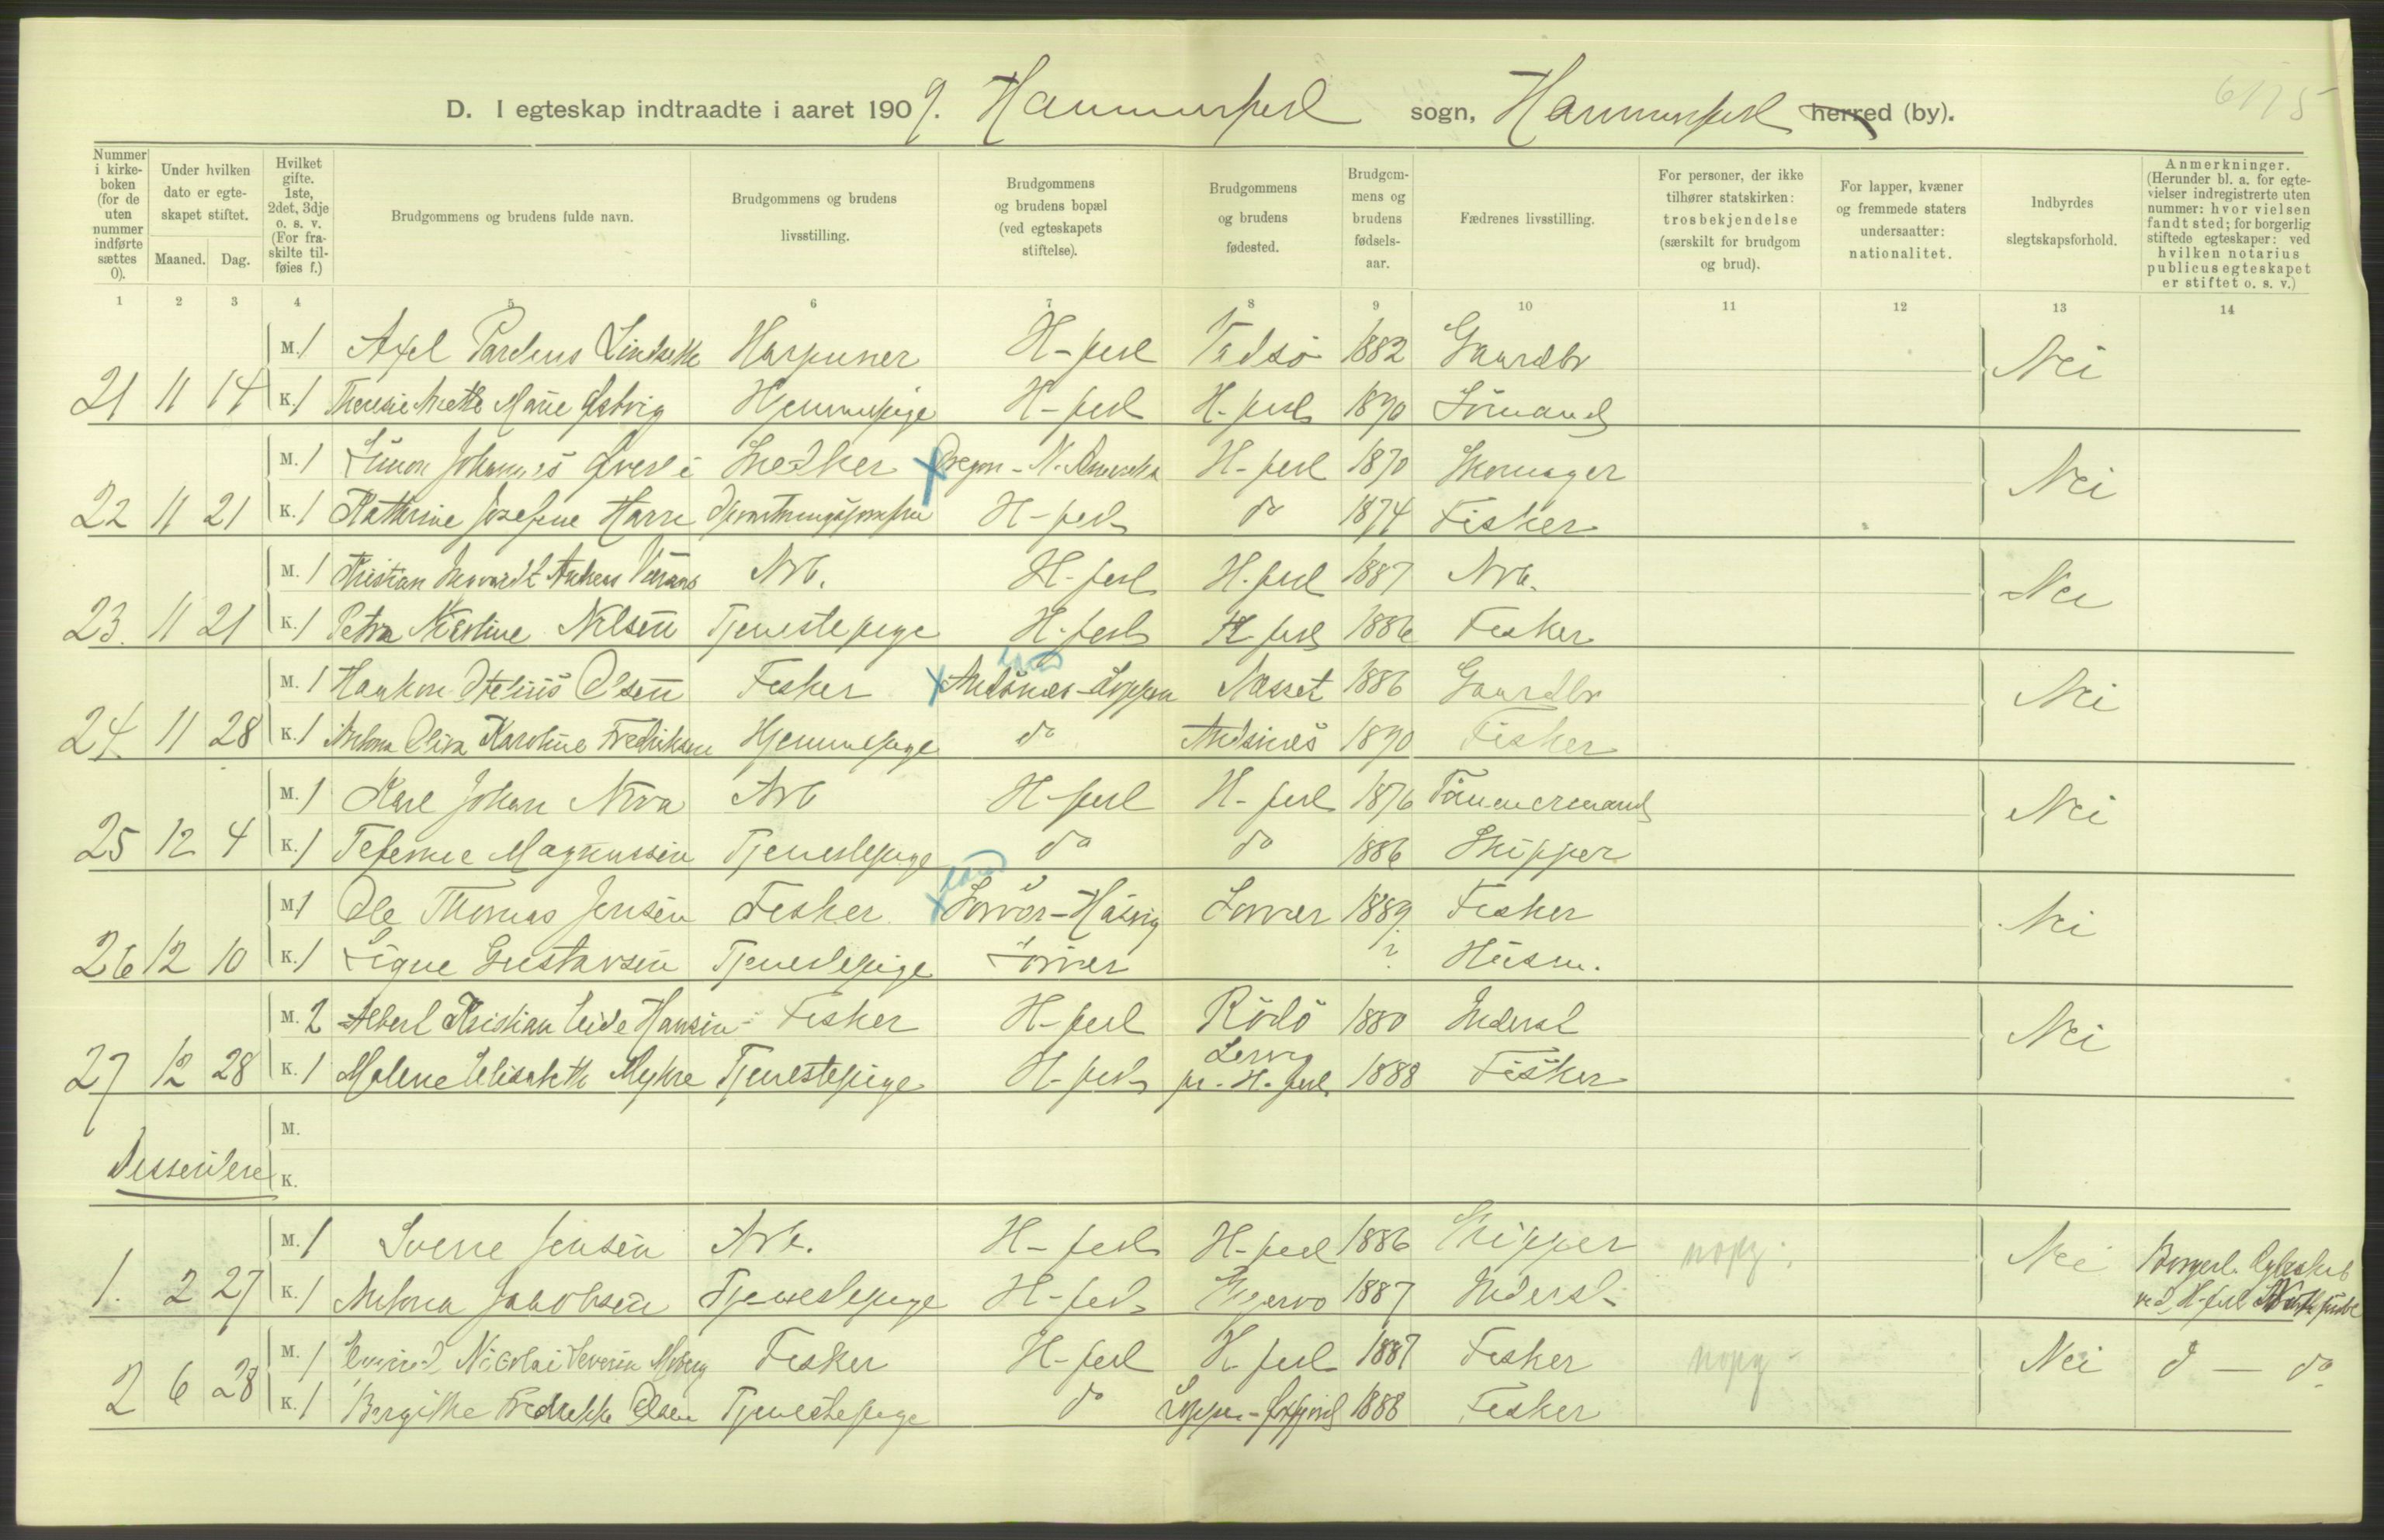 6175
D. I egteskap indtraadte i aaret 1909. Hammerfest sogn, Hammerfest herred (by).
Nummer i kirke-boken (for de uten nummer indførte sættes 0).
Under hvilken dato er egte-skapet stiftet.
Maaned. Dag.
Hvilket gifte. 1ste, 2det, 3dje o. s. v. (For fra-skilte til-føies f.)
Brudgommens og brudens fulde navn.
Brudgommens og brudens livsstilling.
Brudgommens og brudens bopæl (ved egteskapets stiftelse).
Brudgommens og brudens fødested.
Brudgom-mens og brudens fødsels-aar.
Fædrenes livsstilling.
For personer, der ikke tilhører statskirken: trosbekjendelse (særskilt for brudgom og brud).
For lapper, kvæner og fremmede staters undersaatter: nationalitet.
Indbyrdes slegtskapsforhold.
Anmerkninger. (Herunder bl. a. for egte-vielser indregistrerte uten nummer: hvor vielsen fandt sted; for borgerlig stiftede egteskaper: ved hvilken notarius publicus egteskapet er stiftet o. s. v.)
1 2 3 4 5 6 7 8 9 10 11 12 13 14
M. 1 Axel Lindseth Harpuner H-fest Vadsö 1882 Gaardbr Nei
21 11 14 K. 1 Marie Harpuner H-fest H-fest 1890 Sömand
M. 1 Simon Johannes Qvesli Snedker Oregon - N. Amerika H-fest 1870 Skomager Nei
22 11 21 K. 1 Kathrine Josefine Harre H-fest do 1874 Fisker
M. 1 Kristian Arb. H-fest H-fest 1887 Arb. Nei
23. 11 21 K. 1 Petra Kirstine Nilsen Tjenestepige H-fest H-fest 1886 Fisker
M. 1 Haakon Olsen Fisker Andsnes - Loppen Næsset 1886 Gaardbr Nei
24. 11 28 K. 1 Antona Oliva Karoline Fredriksen Hjemmepige do Andsnes 1890 Fisker
M. 1 Karl Johan Niva Arb H-fest H-fest 1876 Tömmermand Nei
25 12 4 K. 1 Magnussen Tjenestepige do do 1886 Skipper
M. 1 Ole Thomas Jensen Fisker Sorvær - Hasvig Sorvær 1889. Fisker Nei
26 12 10 K. 1 Signe Gustavsen Tjenestepige Sorvær ? Husm.
M. 2 Albert Kristian Eide Hansen Fisker H-fest Rödö 1880 Inderst Nei
27 12 28 K. 1 Malene Elisabeth Myhre Tjenestepige H-fest pr. H-fest 1888 Fisker
M.
Dissentere K.
M. 1 Sverre Jensen Arb. H-fest H-fest 1886 Skipper Nei Borgerl. Egteskab
1. 2 27 K. 1 Antona Jakobsen Tjenestepige H-fest 1887 Inderst ved H-fest
M. 1 Nicolai Severin Fisker H-fest H-fest 1887 Fisker Nei d — do
2 6 28 K. 1 Bergithe Fredrikke Olsen Tjenestepige do Loppen - Öxfjord 1888 Fisker